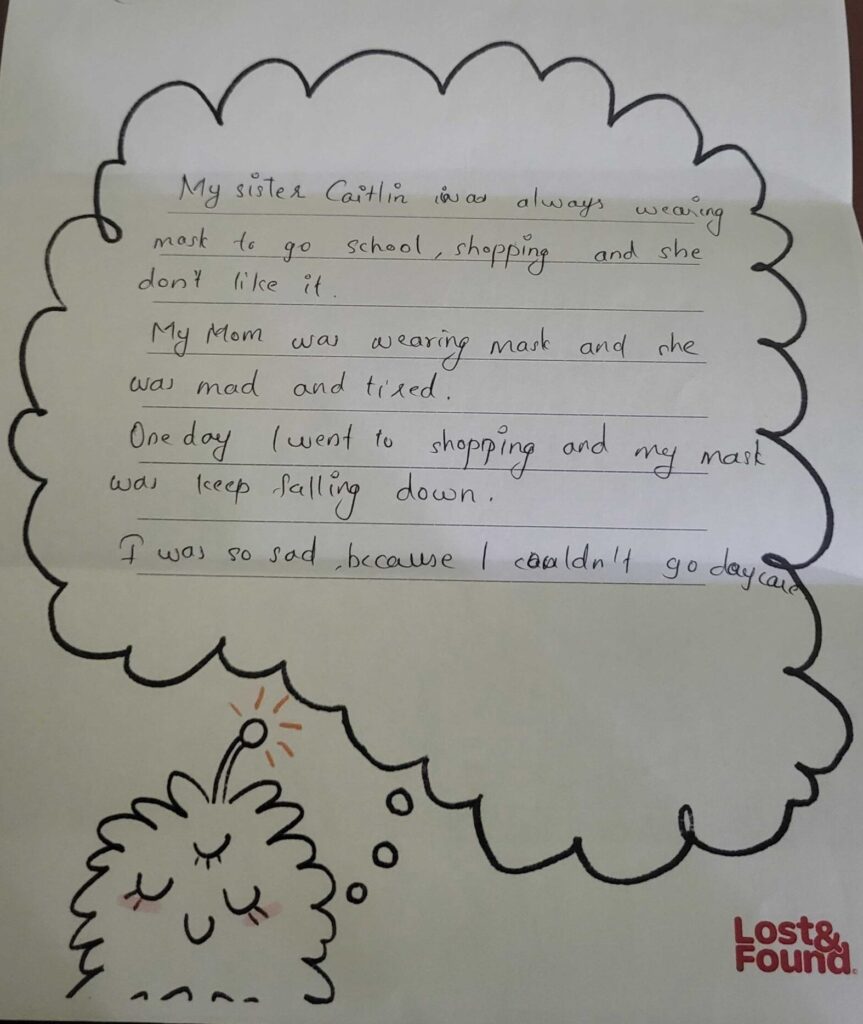 My sister Caitlin was always wearing
mask to go school, shopping and she
don't like it.
My Mom was wearing mask and she
was mad and tired.
One day I went to shopping and my mask
was keep falling down.
I was so sad, because I couldn't go daycare
Lost&
Found